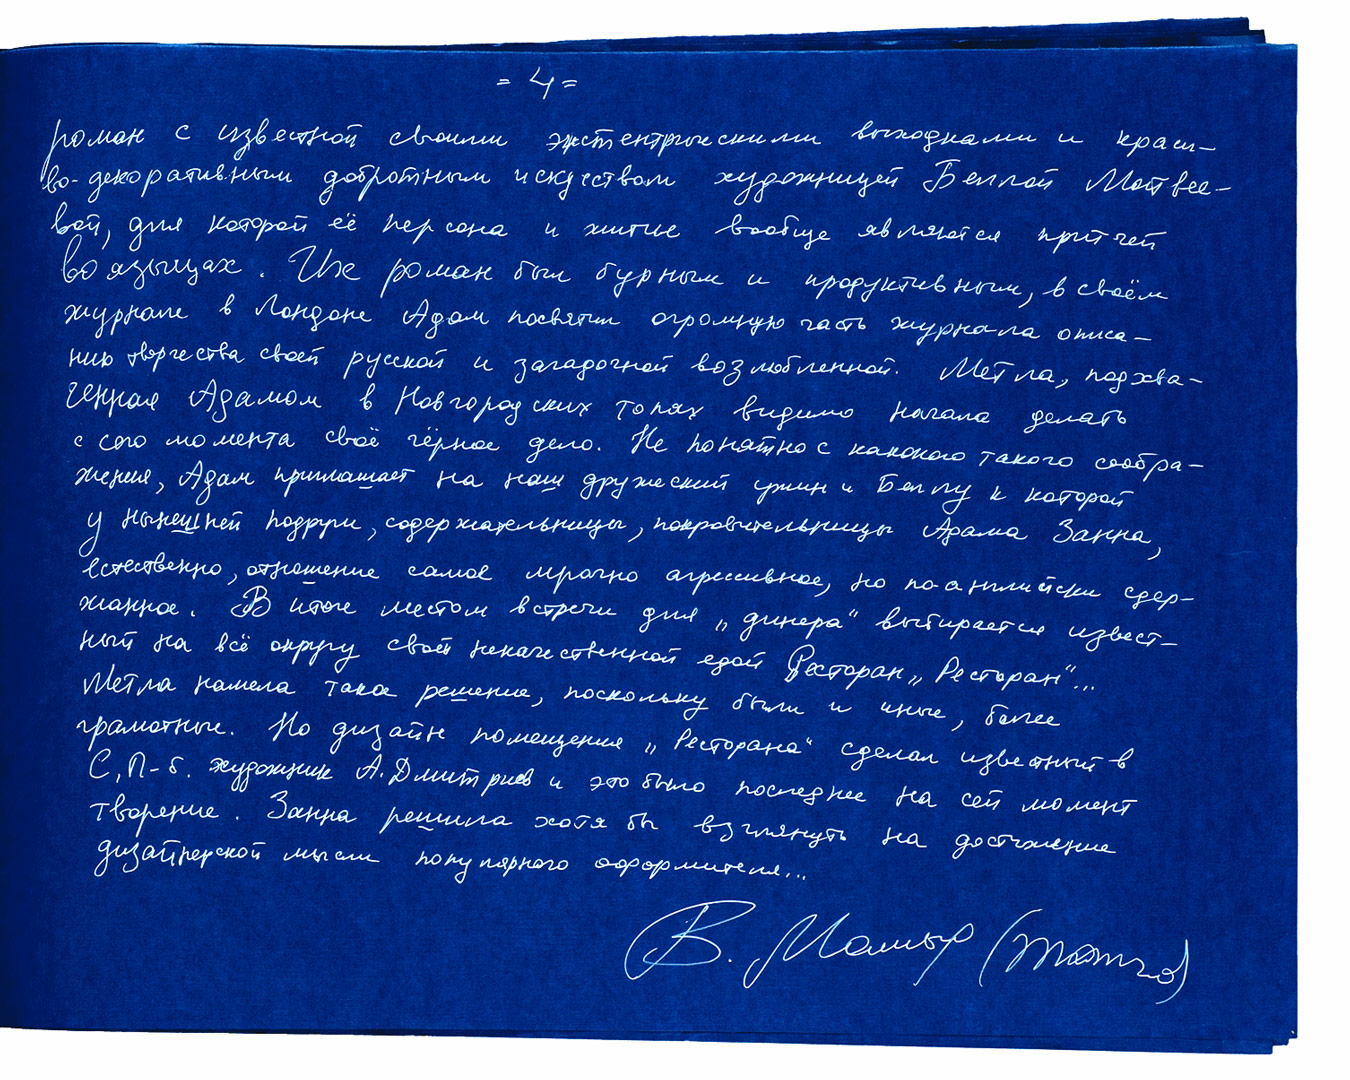 = 4 =
роман с известной своими экстентрискими выходками и краси-
во-декоративным добротным искусством художницей Беллой Матвее-
вой, для которой её персона и житие вообще являются притчей
во языцах. Их роман был бурным и продуктивным, в своём
журнале в Лондоне Адам посвятил огромную часть журнала описа-
нию творчества своей русской и загадочной возлюбленной. Метла, подхва-
ченная Адамом в Новгородских топях видимо начала делать
с сего момента своё чёрное дело. Не понятно с какого такого сообра-
жения, Адам приглашает на наш дружеский ужин и Беллу к которой
у нынешней подруги, содержательницы, покровительницы Адама Занна,
естественно, отношение самое мрачно агрессивное, но по-английски сдер-
жанное. В итоге местом встречи для „динера“ выбирается извест-
ный на всё округу своей некачественной едой Ресторан „Ресторан“...
Метла намела такое решение, поскольку были и иные, более
грамотные. Но дизайн помещения „Ресторана“ сделал известный в
С,П-б. художник А. Дмитриев и это было последнее на сей момент
творение. Занна решила хотя бы взглянуть на достижение
дизайнерской мысли популярного оформителя...
В.